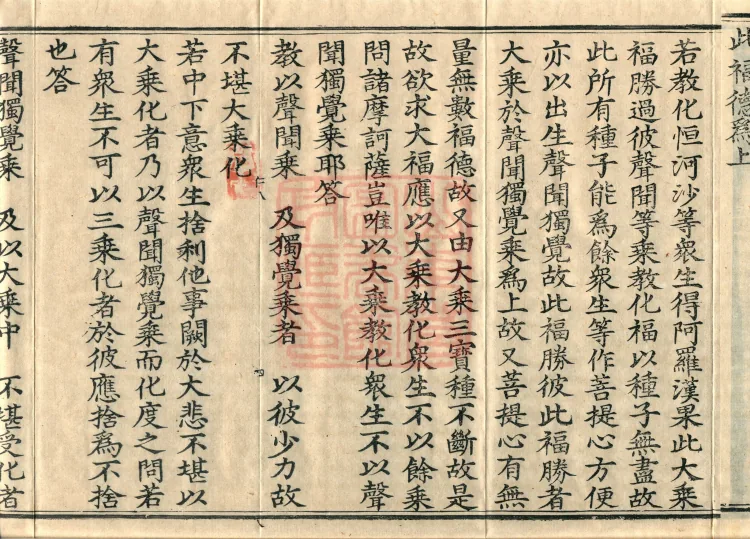 此福德爲上
若教化恒河沙等衆生得阿羅漢果此大乘
福勝過彼聲聞等乘教化福以種子無盡故
此所有種子能爲餘衆生等作菩提心方便
亦以出生聲聞獨覺故此福勝彼此福勝者
大乘於聲聞獨覺乘爲上故又菩提心有無
量無數福德故又由大乘三寶種不斷故是
故欲求大福應以大乘教化衆生不以餘乘
問諸摩訶薩豈唯以大乘教化衆生不以聲
聞獨覺乘耶答
教以聲聞乘 及獨覺乘者 以彼少力故
不堪大乘化
若中下意衆生捨利他事闕於大悲不堪以
大乘化者乃以聲聞獨覺乘而化度之問若
有衆生不可以三乘化者於彼應捨爲不捨
也答
聲聞獨覺乘 及以大乘中 不堪受化者